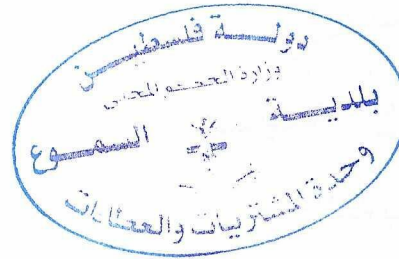 دولة فلسطين
وزارة الحكم المحلي
بلدية السموع
وحدة المشتريات والعطاءات